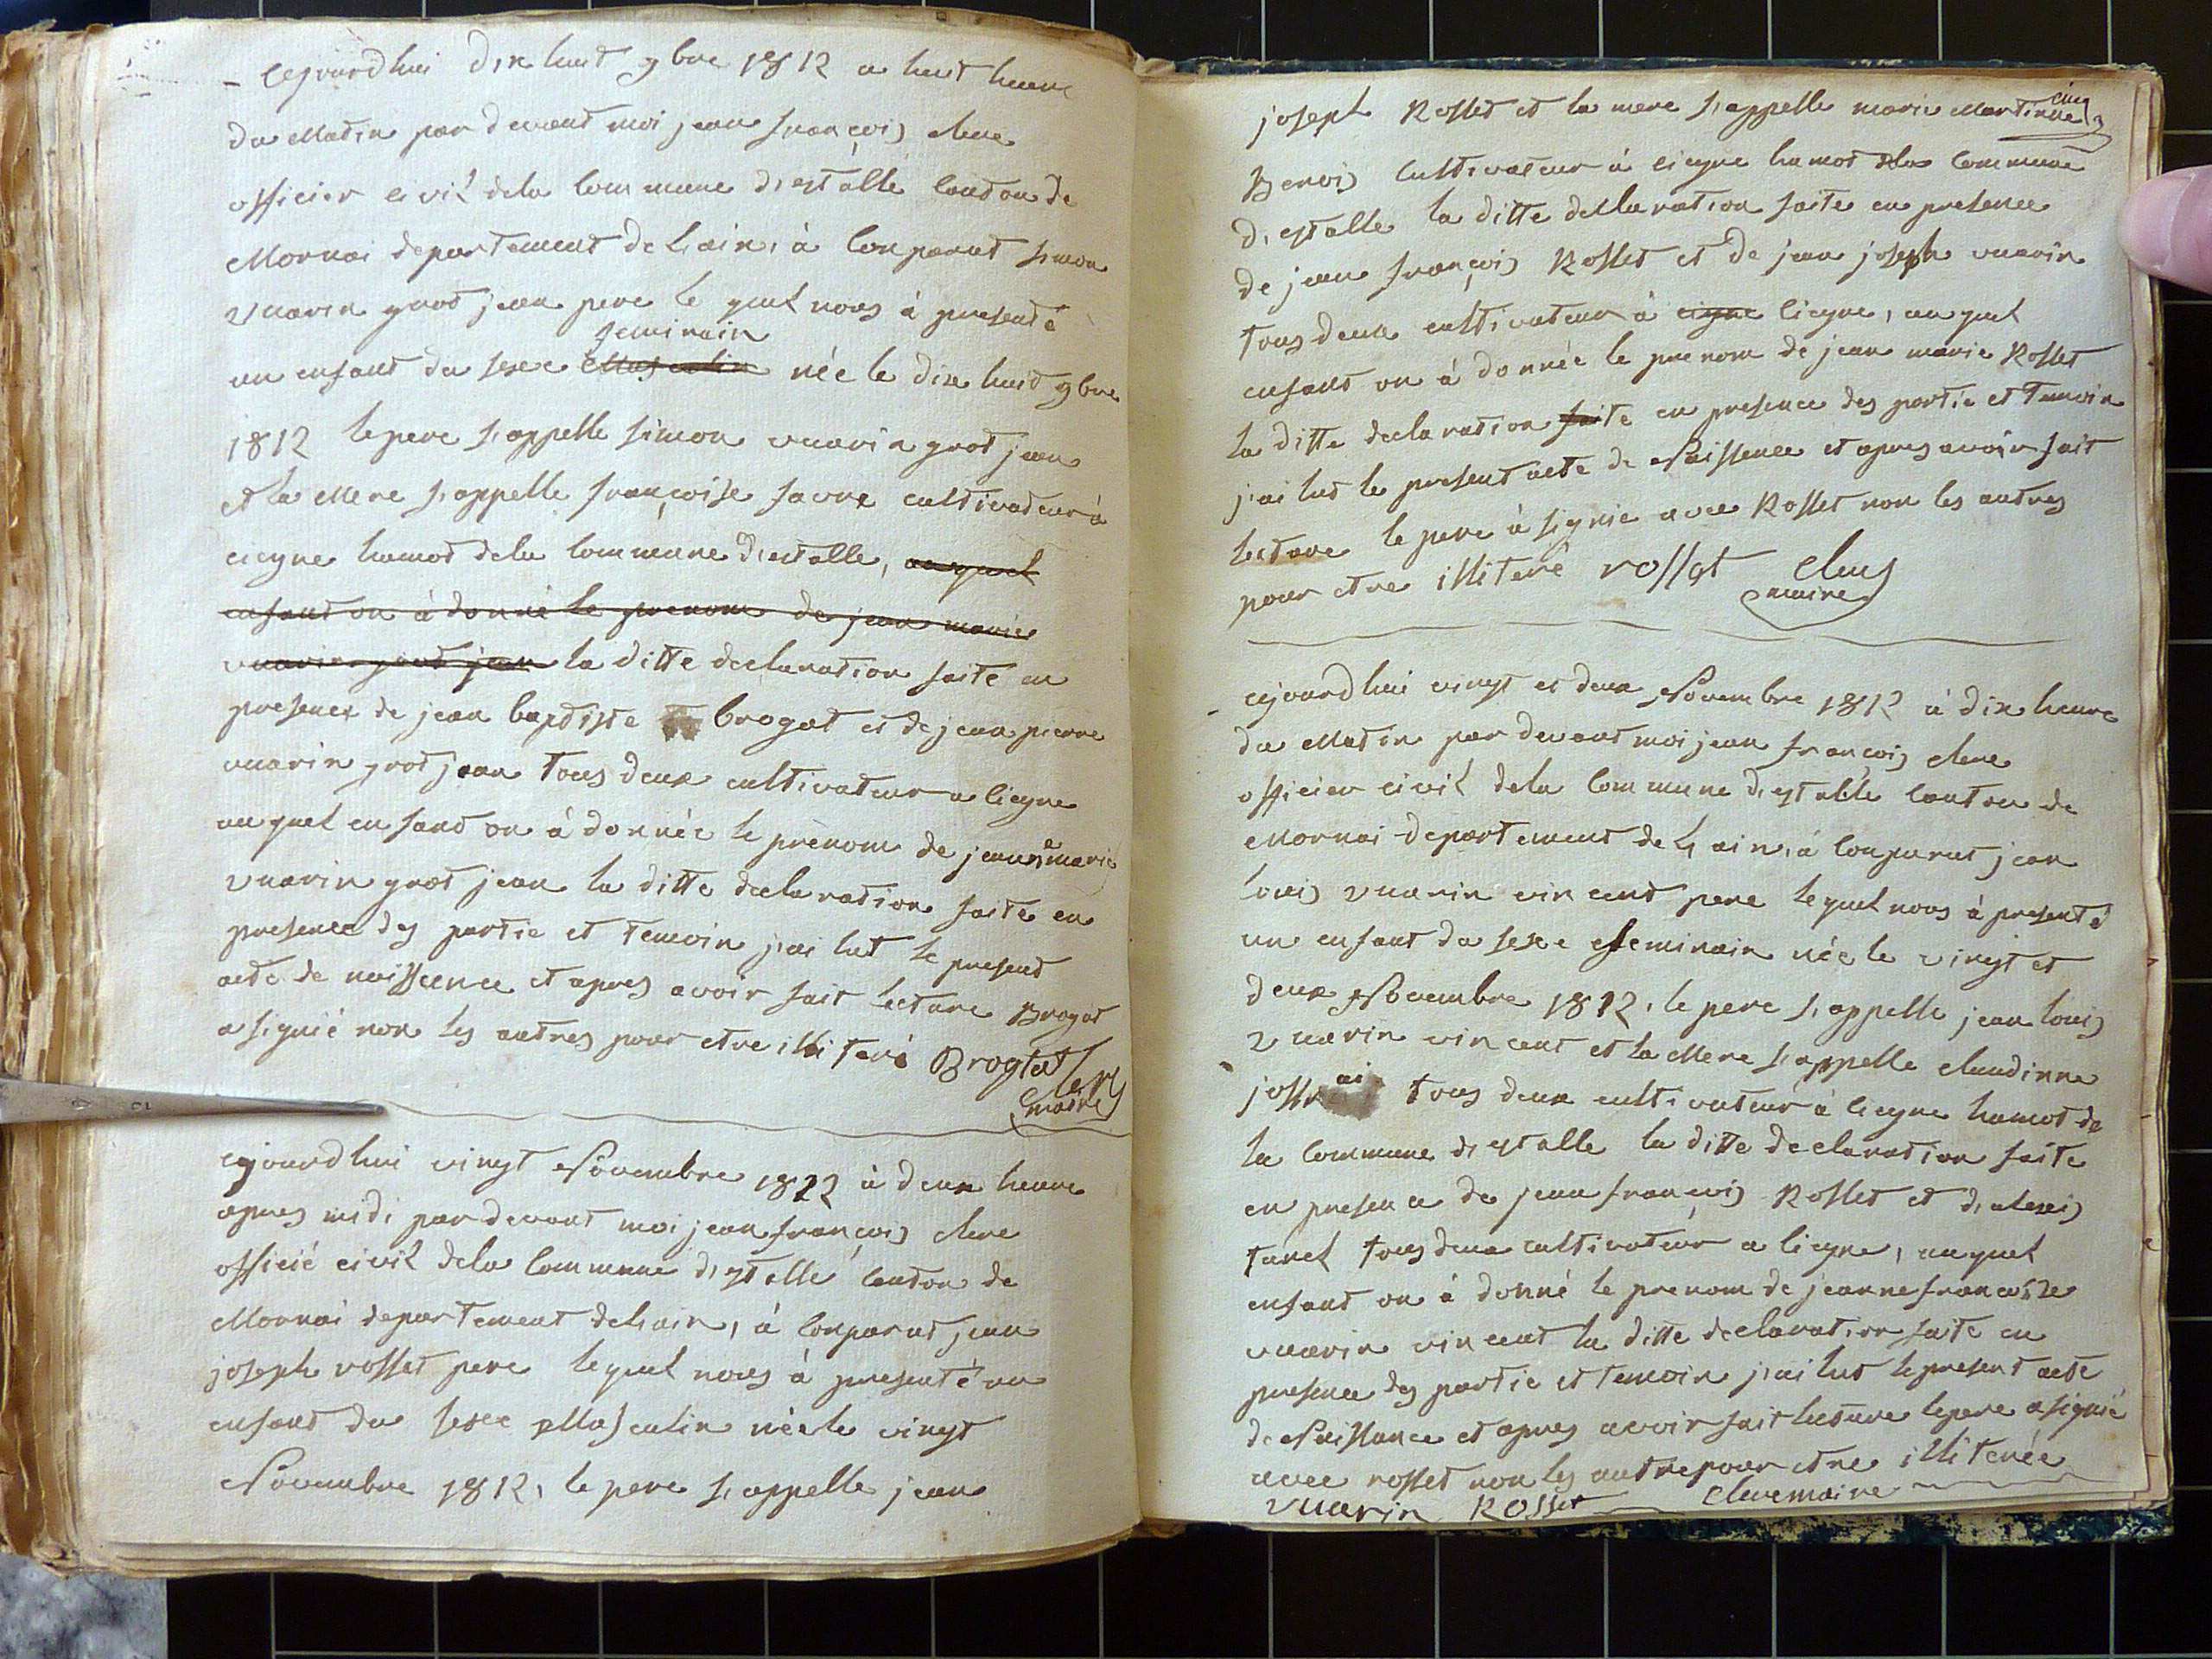 - Cejourdhui dix huit 9bre 1812 a huit heure
du Matin par devant moi jean françois clerc
officier civil dela Commune d,estallé canton de
Mornai departement de L,ain, à Comparut simon
vuarin grod jean pere le quel nous à presenté
feminain
un enfant du sexe Masculin née le dix huit 9bre
1812 le pere s,appelle simon vuarin grod jean
et la Mere s,appelle françoise favre cultivateur à
ciegne hamot dela Commune d,estalle, auquel
enfant on à donné le prenom de jean marie
vuarin grod jean la ditte declaration faite en
presence de jean baptiste brogat et de jean pierre
vuarin grod jean tous deux cultivateur a liegne
auquel enfand on à donnée le prénom de jeanne marie
vuarin grod jean la ditte declaration faite en
presence des partie et temoin j,ai lut le present
acte de naissence et apres avoir fait lecture Brogat
a signié non les autres pour etre illiteré Brogtat Clerc
maire
cejourdhui vingt Novembre 1812 à deux heure
apres midi par devant moi jean françois clerc
officié civil dela Commune d,estallé canton de
Mornai departement de L,ain, à Comparut jean
joseph rosset pere lequel nous à presenté un
enfant du sexe Masculin née le vingt
Novembre 1812, le pere s,appelle jean
cinq
joseph Rosset et la mere s,appelle marie Martinne
Benois Cultivateur à ciegne hamot dla Commune
d,estalle la ditte declaration faite en presence
de jean françois Rosset et de jean joseph vuarin
tous deux cultivateur à cigne liegne, auquel
enfant on à donnée le prenom de jean marie Rosset
la ditte declaration faite en presence des partie et temoin
j,ai lut le present acte de Naissence et apres avoir fait
lecture le pere à signie avec Rosset non les autres
pour etre illiteré rosset Clerc
maire
- cejourdhui vingt et deux Novembre 1812 à dix heure
du Matin par devant moi jean françois clerc
officier civil dela Commune d,estallé canton de
Mornai departement de L,ain, à Comparut jean
louis vuarin vincent pere lequel nous à presenté
un enfant du sexe feminain née le vingt et
deux Novembre 1812, le pere s,appelle jean louis
vuarin vincent et la Mere s,appelle claudinne
ai
tous deux cultivateur à liegne hamot de
la Commune d,estalle la ditte declaration faite
en presence de jean françois Rosset et d,alexis
tous deux cultivateur a liegne, auquel
enfant on à donné le prenom de jeanne françoise
vuarin vincent la ditte declaration faite en
presence des partie et temoin j,ai lut le present acte
de Naissance et apres avoir fait lecture le pere a signié
avec rosset non les autre pour etre illiterée
vuarin Rosset Clerc maire